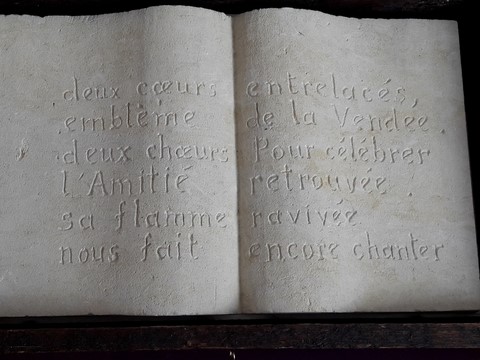 deux cœurs entrelacés,
emblème de la Vendée.
deux chœurs Pour célébrer
l'Amitié retrouvée.
sa flamme ravivée
nous fait encore chanter